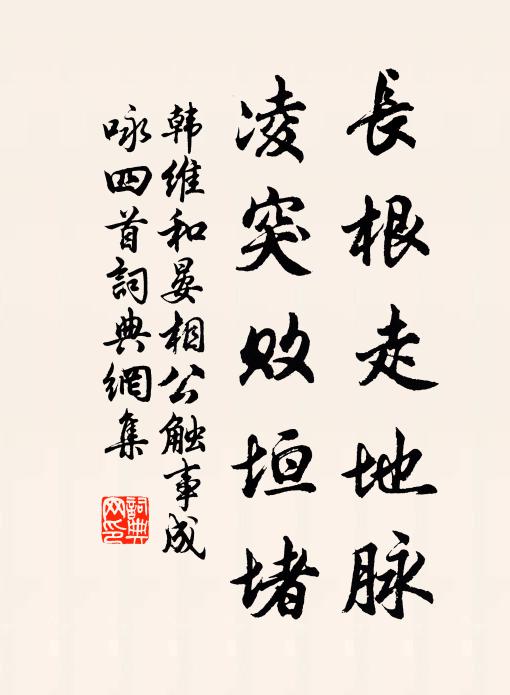 長根走地脉
凌突敗垣堵
韩維和晏相公触事成
咏四首詞典網集
詞典网印